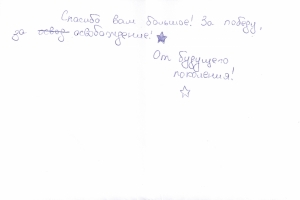 Спасибо вам большое! За победу,
за освод асвобаждение!
От будущего
поколения!